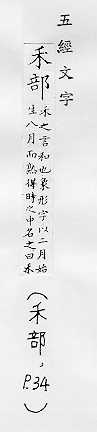 五經文字
禾部
禾之言和也象形字以二月始
生八月而熟得時之中名之曰禾
（禾部，P.34）